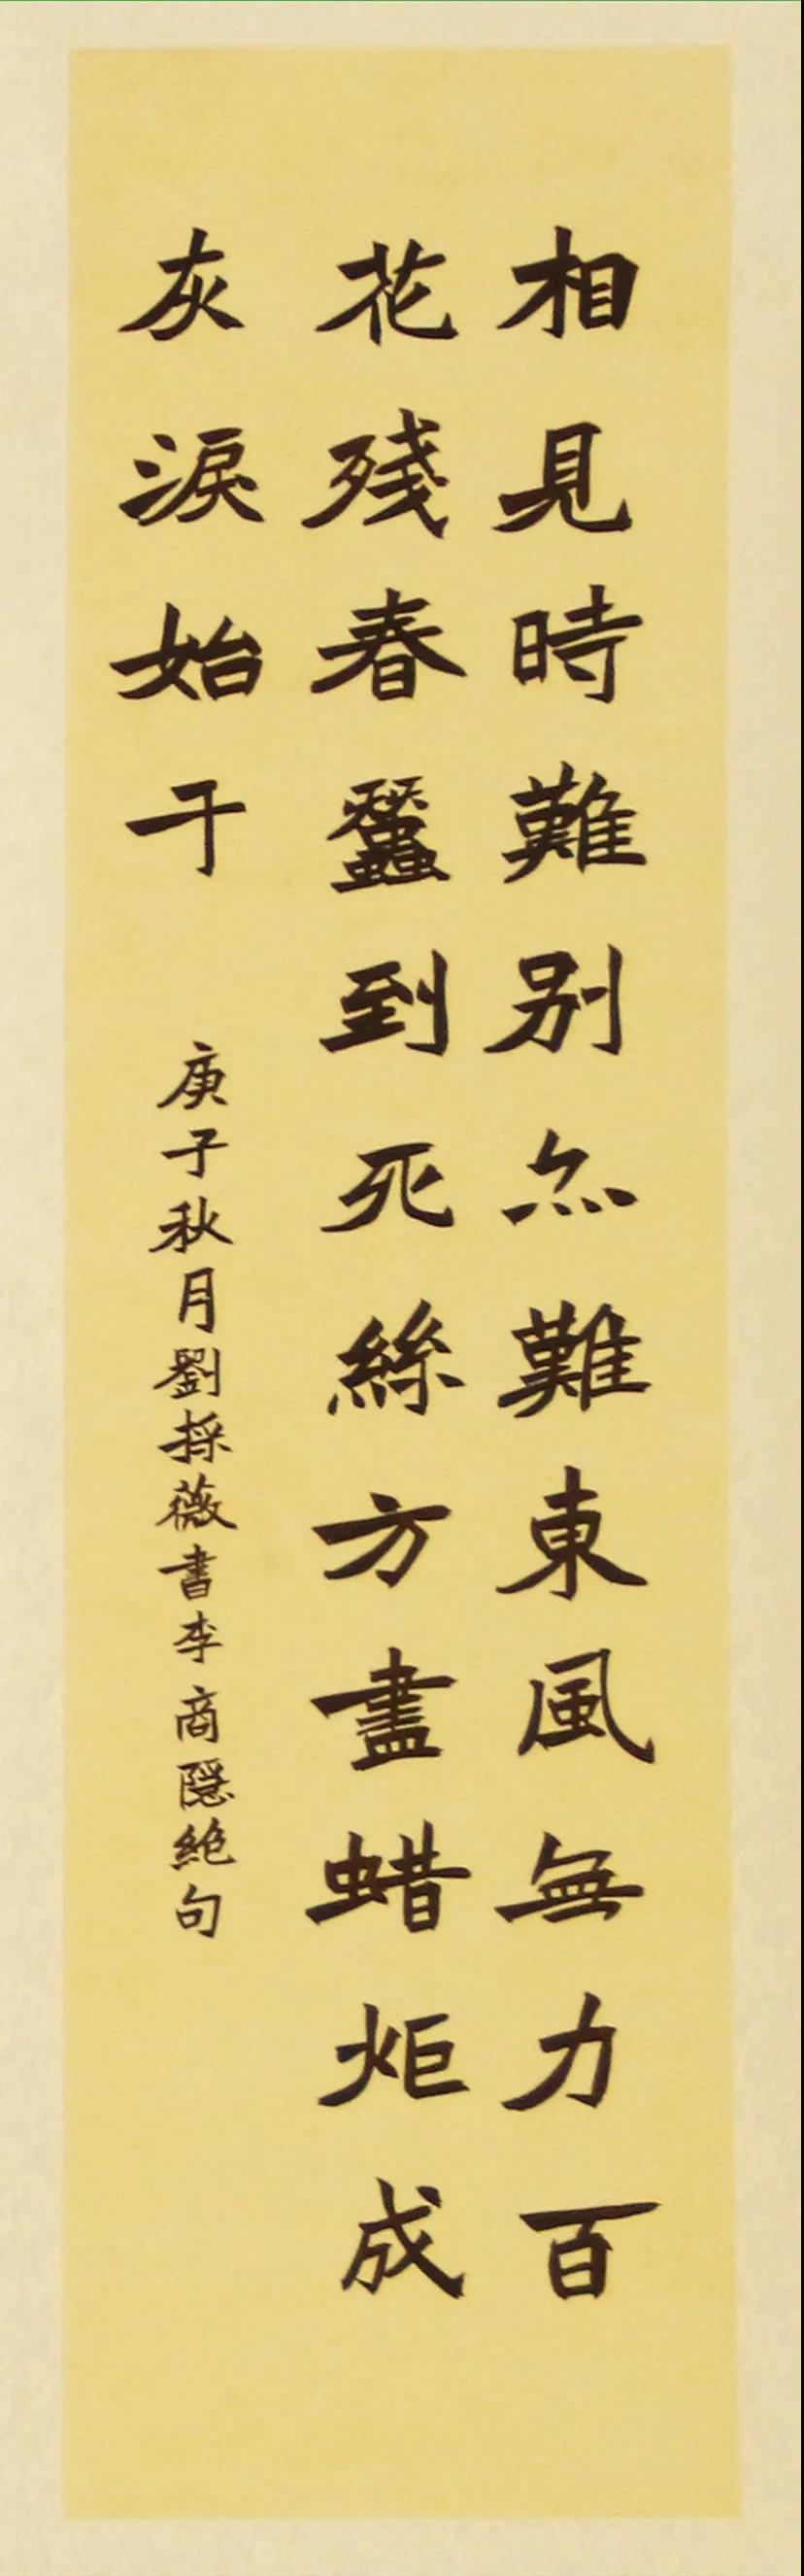 相見時難别亦難東風無力百
花殘春蠶到死絲方盡蜡炬成
灰淚始干
庚子秋月劉採薇書李商隱絶句